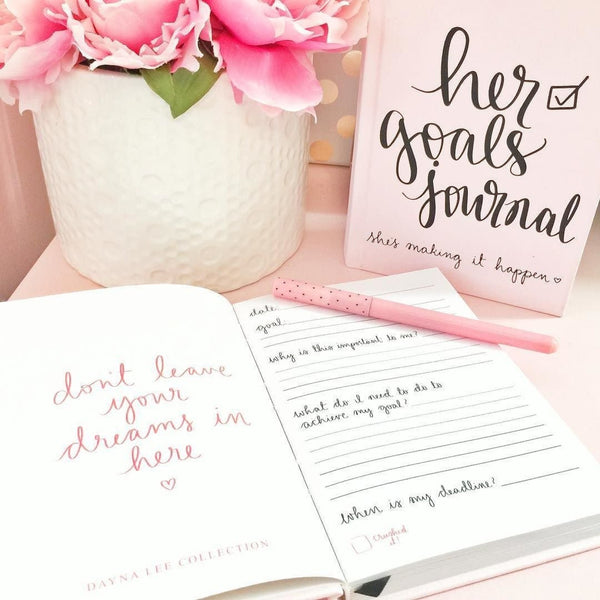 her
goals
journal
shes making it happen ♡
don't leave
your
dreams in
here
♡
DAYNA LEE COLLECTION
date
goal
why is this important to me?
what do I need to do to
achieve my goal?
when is my deadline?
crushed
it!